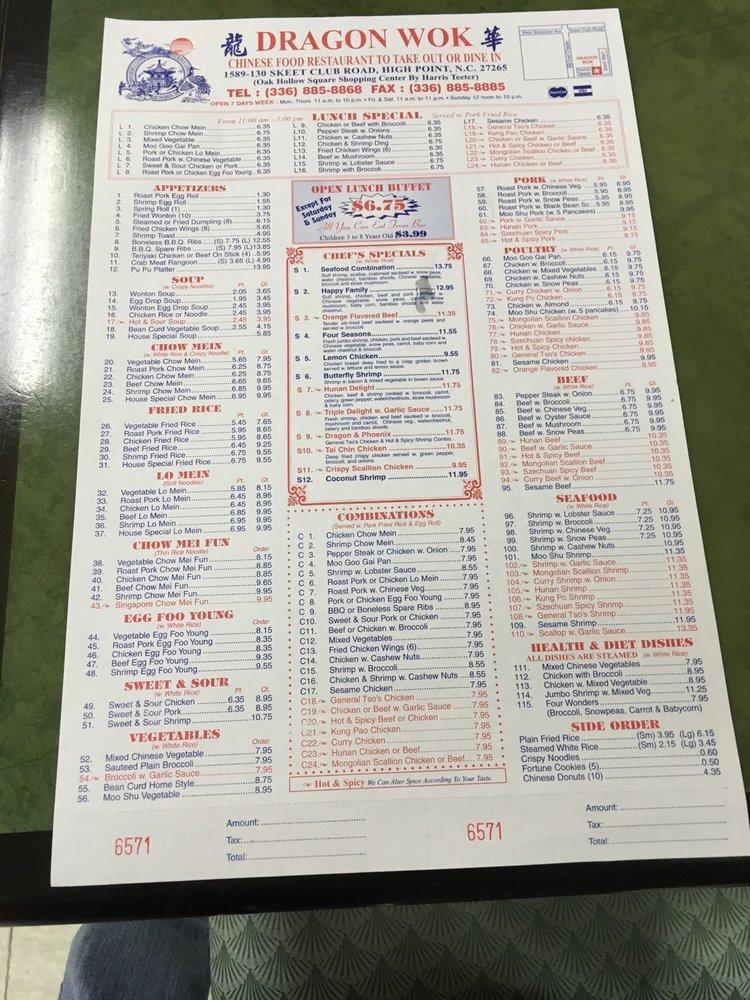 龍 DRAGON WOK 華
CHINESE FOOD RESTAURANT TO TAKE OUT OR DINE IN
1589-130 SKEET CLUB ROAD, HIGH POINT, N.C. 27265
(Oak Hollow Square Shopping Center By Harris Teeter)
TEL : (336) 885-8868 FAX : (336) 885-8885
OPEN 7 DAYS WEEK : Mon.-Thurs. 11 a.m. to 10 p.m. • Fri. & Sat. 11 a.m. to 11 p.m. • Sunday 12 noon to 10 p.m.
Skeet Club Road
DRAGON WOK
From 11:00 am - 3:00 pm LUNCH SPECIAL Served w. Pork Fried Rice
L 1. Chicken Chow Mein 6.35
L 2. Shrimp Chow Mein 6.75
L 3. Mixed Vegetable 6.35
L 4. Moo Goo Gai Pan 6.35
L 5. Pork or Chicken Lo Mein 6.35
L 6. Roast Pork w. Chinese Vegetable 6.35
L 7. Sweet & Sour Chicken or Pork 6.35
L 8. Roast Pork or Chicken Egg Foo Young 6.35
L 9. Chicken or Beef with Broccoli 6.35
L10. Pepper Steak w. Onions 6.35
L11. Chicken w. Cashew Nuts 6.35
L12. Chicken & Shrimp Ding 6.75
L13. Fried Chicken Wings (6) 6.35
L14. Beef w. Mushroom 6.35
L15. Shrimp w. Lobster Sauce 6.75
L16. Shrimp with Broccoli 6.75
L17. Sesame Chicken 6.35
L18. General Tso's Chicken 6.35
L19. Kung Pao Chicken 6.35
L20. Chicken or Beef w. Garlic Sauce 6.35
L21. Hot & Spicy Chicken or Beef 6.35
L22. Mongolian Scallion Chicken or Beef 6.35
L23. Curry Chicken 6.35
L24. Hunan Chicken or Beef 6.35
APPETIZERS
1. Roast Pork Egg Roll 1.30
2. Shrimp Egg Roll 1.55
3. Spring Roll (1) 1.30
4. Fried Wonton (10) 3.75
5. Steamed or Fried Dumpling (8) 6.15
6. Fried Chicken Wings (8) 5.65
7. Shrimp Toast 4.95
8. Boneless B.B.Q. Ribs (S) 7.75 (L) 12.55
9. B.B.Q. Spare Ribs (S) 7.95 (L) 13.85
10. Teriyaki Chicken or Beef On Stick (4) 5.95
11. Crab Meat Rangoon (S) 3.65 (L) 4.95
12. Pu Pu Platter 13.95
SOUP
(w. Crispy Noodles) Pt. Qt.
13. Wonton Soup 2.05 3.65
14. Egg Drop Soup 1.95 3.45
15. Wonton Egg Drop Soup 2.45 3.95
16. Chicken Rice or Noodle 2.45 3.95
17. Hot & Sour Soup 2.45 3.95
18. Bean Curd Vegetable Soup 2.55 4.15
19. House Special Soup 5.85
CHOW MEIN
(w. White Rice & Crispy Noodle) Pt. Qt.
20. Vegetable Chow Mein 5.65 7.95
21. Roast Pork Chow Mein 6.25 8.75
22. Chicken Chow Mein 6.25 8.75
23. Beef Chow Mein 6.65 9.65
24. Shrimp Chow Mein 6.85 9.95
25. House Special Chow Mein 6.95 9.95
FRIED RICE
Pt. Qt.
26. Vegetable Fried Rice 5.45 7.65
27. Roast Pork Fried Rice 5.95 8.65
28. Chicken Fried Rice 5.95 8.65
29. Beef Fried Rice 6.45 9.25
30. Shrimp Fried Rice 6.75 9.55
31. House Special Fried Rice 6.75 9.55
LO MEIN
(Soft Noodles) Pt. Qt.
32. Vegetable Lo Mein 5.85 8.15
33. Roast Pork Lo Mein 6.45 8.95
34. Chicken Lo Mein 6.45 8.95
35. Beef Lo Mein 6.85 9.95
36. Shrimp Lo Mein 6.95 9.95
37. House Special Lo Mein 6.95 9.95
CHOW MEI FUN
(Thin Rice Noodle) Order
38. Vegetable Chow Mei Fun 8.15
39. Roast Pork Chow Mei Fun 8.85
40. Chicken Chow Mei Fun 8.85
41. Beef Chow Mei Fun 9.65
42. Shrimp Chow Mei Fun 9.95
43. Singapore Chow Mei Fun 9.95
EGG FOO YOUNG
(w. White Rice) Order
44. Vegetable Egg Foo Young 8.15
45. Roast Pork Egg Foo Young 8.35
46. Chicken Egg Foo Young 8.35
47. Beef Egg Foo Young 9.35
48. Shrimp Egg Foo Young 9.55
SWEET & SOUR
(w. White Rice) Pt. Qt.
49. Sweet & Sour Chicken 6.35 8.95
50. Sweet & Sour Pork 6.35 8.95
51. Sweet & Sour Shrimp 10.75
VEGETABLES
(w. White Rice) Order
52. Mixed Chinese Vegetable 7.95
53. Sauteed Plain Broccoli 7.95
54. Broccoli w. Garlic Sauce 7.95
55. Bean Curd Home Style 8.75
56. Moo Shu Vegetable 8.95
OPEN LUNCH BUFFET
Except For Saturday & Sunday
$6.75
All You Can Eat From Bar
Children 3 to 8 Years Old $3.99
CHEF'S SPECIALS
(w. White Rice)
S 1. Seafood Combination 13.75
Gulf shrimp, scallop, crabmeat sauteed w. snow peas, water chestnut, bamboo shoots, Chinese vegetable, broccoli and straw mushroom.
S 2. Happy Family 12.95
Gulf shrimp, chicken, beef and pork w. Chinese vegetable, snow peas, mushroom, baby corn, bamboo shoots and water chestnut.
S 3. Orange Flavored Beef 11.35
Tender stir-fried beef sauteed w. orange peels and served w. broccoli.
S 4. Four Seasons 11.55
Fresh jumbo shrimp, chicken, pork and beef sauteed w. Chinese vegetable, snow peas, carrot, baby corn and water chestnut & broccoli.
S 5. Lemon Chicken 9.55
Chicken breast deep fried in a crisp golden brown served w. lettuce and lemon sauce.
S 6. Butterfly Shrimp 11.75
Shrimp w. bacon & mixed vegetable in brown sauce.
S 7. Hunan Delight 11.75
Chicken, beef & shrimp cooked w. broccoli, carrot, celery, green pepper, waterchestnuts, straw mushroom & baby corn.
S 8. Triple Delight w. Garlic Sauce 11.75
Fresh shrimp, chicken and beef sauteed w. broccoli, mushroom and carrot, Chinese veg., waterchestnut, celery and bamboo shoots.
S 9. Dragon & Phoenix 11.75
General Tso's Chicken & Hot & Spicy Shrimp Combo.
S10. Tai Chin Chicken 10.35
Deep fried crispy chicken served w. green pepper, broccoli, and onions.
S11. Crispy Scallion Chicken 9.95
S12. Coconut Shrimp 11.95
COMBINATIONS
(Served w. Pork Fried Rice & Egg Roll)
C 1. Chicken Chow Mein 7.95
C 2. Shrimp Chow Mein 8.45
C 3. Pepper Steak or Chicken w. Onion 7.95
C 4. Moo Goo Gai Pan 7.95
C 5. Shrimp w. Lobster Sauce 8.55
C 6. Roast Pork or Chicken Lo Mein 7.95
C 7. Roast Pork w. Chinese Veg. 7.95
C 8. Pork or Chicken Egg Foo Young 7.95
C 9. BBQ or Boneless Spare Ribs 8.95
C10. Sweet & Sour Pork or Chicken 7.95
C11. Beef or Chicken w. Broccoli 7.95
C12. Mixed Vegetables 7.95
C13. Fried Chicken Wings (6) 7.95
C14. Chicken w. Cashew Nuts 7.95
C15. Shrimp w. Broccoli 8.55
C16. Chicken & Shrimp w. Cashew Nuts 8.55
C17. Sesame Chicken 7.95
C18. General Tso's Chicken 7.95
C19. Chicken or Beef w. Garlic Sauce 7.95
C20. Hot & Spicy Beef or Chicken 7.95
C21. Kung Pao Chicken 7.95
C22. Curry Chicken 7.95
C23. Hunan Chicken or Beef 7.95
C24. Mongolian Scallion Chicken or Beef 7.95
Hot & Spicy We Can Alter Spice According To Your Taste.
PORK (w. White Rice) Pt. Qt.
57. Roast Pork w. Chinese Veg. 5.95 8.95
58. Roast Pork w. Broccoli 5.95 8.95
59. Roast Pork w. Snow Peas 5.95 8.95
60. Roast Pork w. Black Bean Sc. 5.95 8.95
61. Moo Shu Pork (w. 5 Pancakes) 9.95
62. Pork w. Garlic Sauce 9.15
63. Hunan Pork 9.15
64. Szechuan Spicy Pork 9.15
65. Hot & Spicy Pork 9.15
POULTRY (w. White Rice) Pt. Qt.
66. Moo Goo Gai Pan 6.15 9.75
67. Chicken w. Broccoli 6.15 9.75
68. Chicken w. Mixed Vegetables 6.15 9.75
69. Chicken w. Cashew Nuts 6.15 9.75
70. Chicken w. Snow Peas 6.15 9.75
71. Curry Chicken w. Onion 6.15 9.75
72. Kung Po Chicken 6.15 9.75
73. Chicken w. Almond 6.15 9.75
74. Moo Shu Chicken (w. 5 pancakes) 10.15
75. Mongolian Scallion Chicken 9.85
76. Chicken w. Garlic Sauce 9.85
77. Hunan Chicken 9.85
78. Szechuan Spicy chicken 9.85
79. Hot & Spicy Chicken 9.85
80. General Tso's Chicken 9.95
81. Sesame Chicken 9.95
82. Orange Flavored Chicken 9.95
BEEF
(w. White Rice) Pt. Qt.
83. Pepper Steak w. Onion 6.75 9.95
84. Beef w. Broccoli 6.75 9.95
85. Beef w. Chinese Veg. 6.75 9.95
86. Beef w. Oyster Sauce 6.75 9.95
87. Beef w. Mushroom 6.75 9.95
88. Beef w. Snow Peas 6.75 9.95
89. Hunan Beef 10.35
90. Beef w. Garlic Sauce 10.35
91. Hot & Spicy Beef 10.35
92. Mongolian Scallion Beef 10.35
93. Szechuan Spicy Beef 10.35
94. Curry Beef w. Onion 10.35
95. Sesame Beef 11.75
SEAFOOD
(w. White Rice) Pt. Qt.
96. Shrimp w. Lobster Sauce 7.25 10.95
97. Shrimp w. Broccoli 7.25 10.95
98. Shrimp w. Chinese Veg. 7.25 10.95
99. Shrimp w. Snow Peas 7.25 10.95
100. Shrimp w. Cashew Nuts 10.95
101. Moo Shu Shrimp 11.35
102. Shrimp w. Garlic Sauce 11.35
103. Mongolian Scallion Shrimp 11.35
104. Curry Shrimp w. Onion 11.35
105. Hunan Shrimp 11.35
106. Kung Po Shrimp 11.35
107. Szechuan Spicy Shrimp 11.35
108. General Tso's Shrimp 11.95
109. Sesame Shrimp 11.95
110. Scallop w. Garlic Sauce 13.35
HEALTH & DIET DISHES
ALL DISHES ARE STEAMED (w. White Rice)
111. Mixed Chinese Vegetables 7.95
112. Chicken with Broccoli 8.95
113. Chicken w. Mixed Vegetable 8.95
114. Jumbo Shrimp w. Mixed Veg. 11.25
115. Four Wonders 7.95
(Broccoli, Snowpeas, Carrot & Babycorn)
SIDE ORDER
Plain Fried Rice (Sm) 3.95 (Lg) 6.15
Steamed White Rice (Sm) 2.15 (Lg) 3.45
Crispy Noodles 0.60
Fortune Cookies (5) 0.50
Chinese Donuts (10) 4.35
6571
Amount:
Tax:
Total:
6571
Amount:
Tax:
Total: